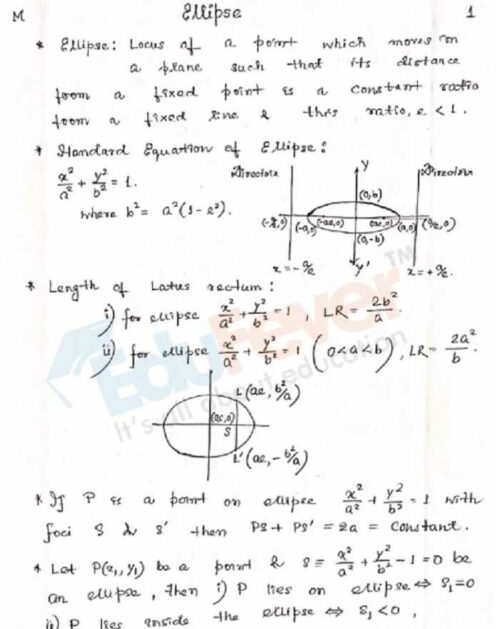 M Ellipse 1
* Ellipse: Locus of a point which moves in
a plane such that its distance
from a fixed point is a constant ratio
from a fixed line & this ratio, e < 1.
* Standard Equation of Ellipse:
x²/a² + y²/b² = 1.
where b² = a²(1 - e²).
Directrix Y Directrix
(0,b)
(-a/e,0) (-a,0) (-ae,0) (ae,0) (a,0) (a/e,0)
(0,-b)
x = -a/e Y' x = +a/e.
* Length of Latus rectum:
i) for ellipse x²/a² + y²/b² = 1, LR = 2b²/a.
ii) for ellipse x²/a² + y²/b² = 1 (0<a<b), LR = 2a²/b.
EduFever TM
It's all about education
L(ae, b²/a)
(ae,0)
S
L'(ae, -b²/a)
* If P is a point on ellipse x²/a² + y²/b² = 1 with
foci S & S' then PS + PS' = 2a = Constant.
* Let P(x₁,y₁) be a point & S ≡ x²/a² + y²/b² - 1 = 0 be
an ellipse, then i) P lies on ellipse ⇔ S₁=0
ii) P lies inside the ellipse ⇔ S₁<0,